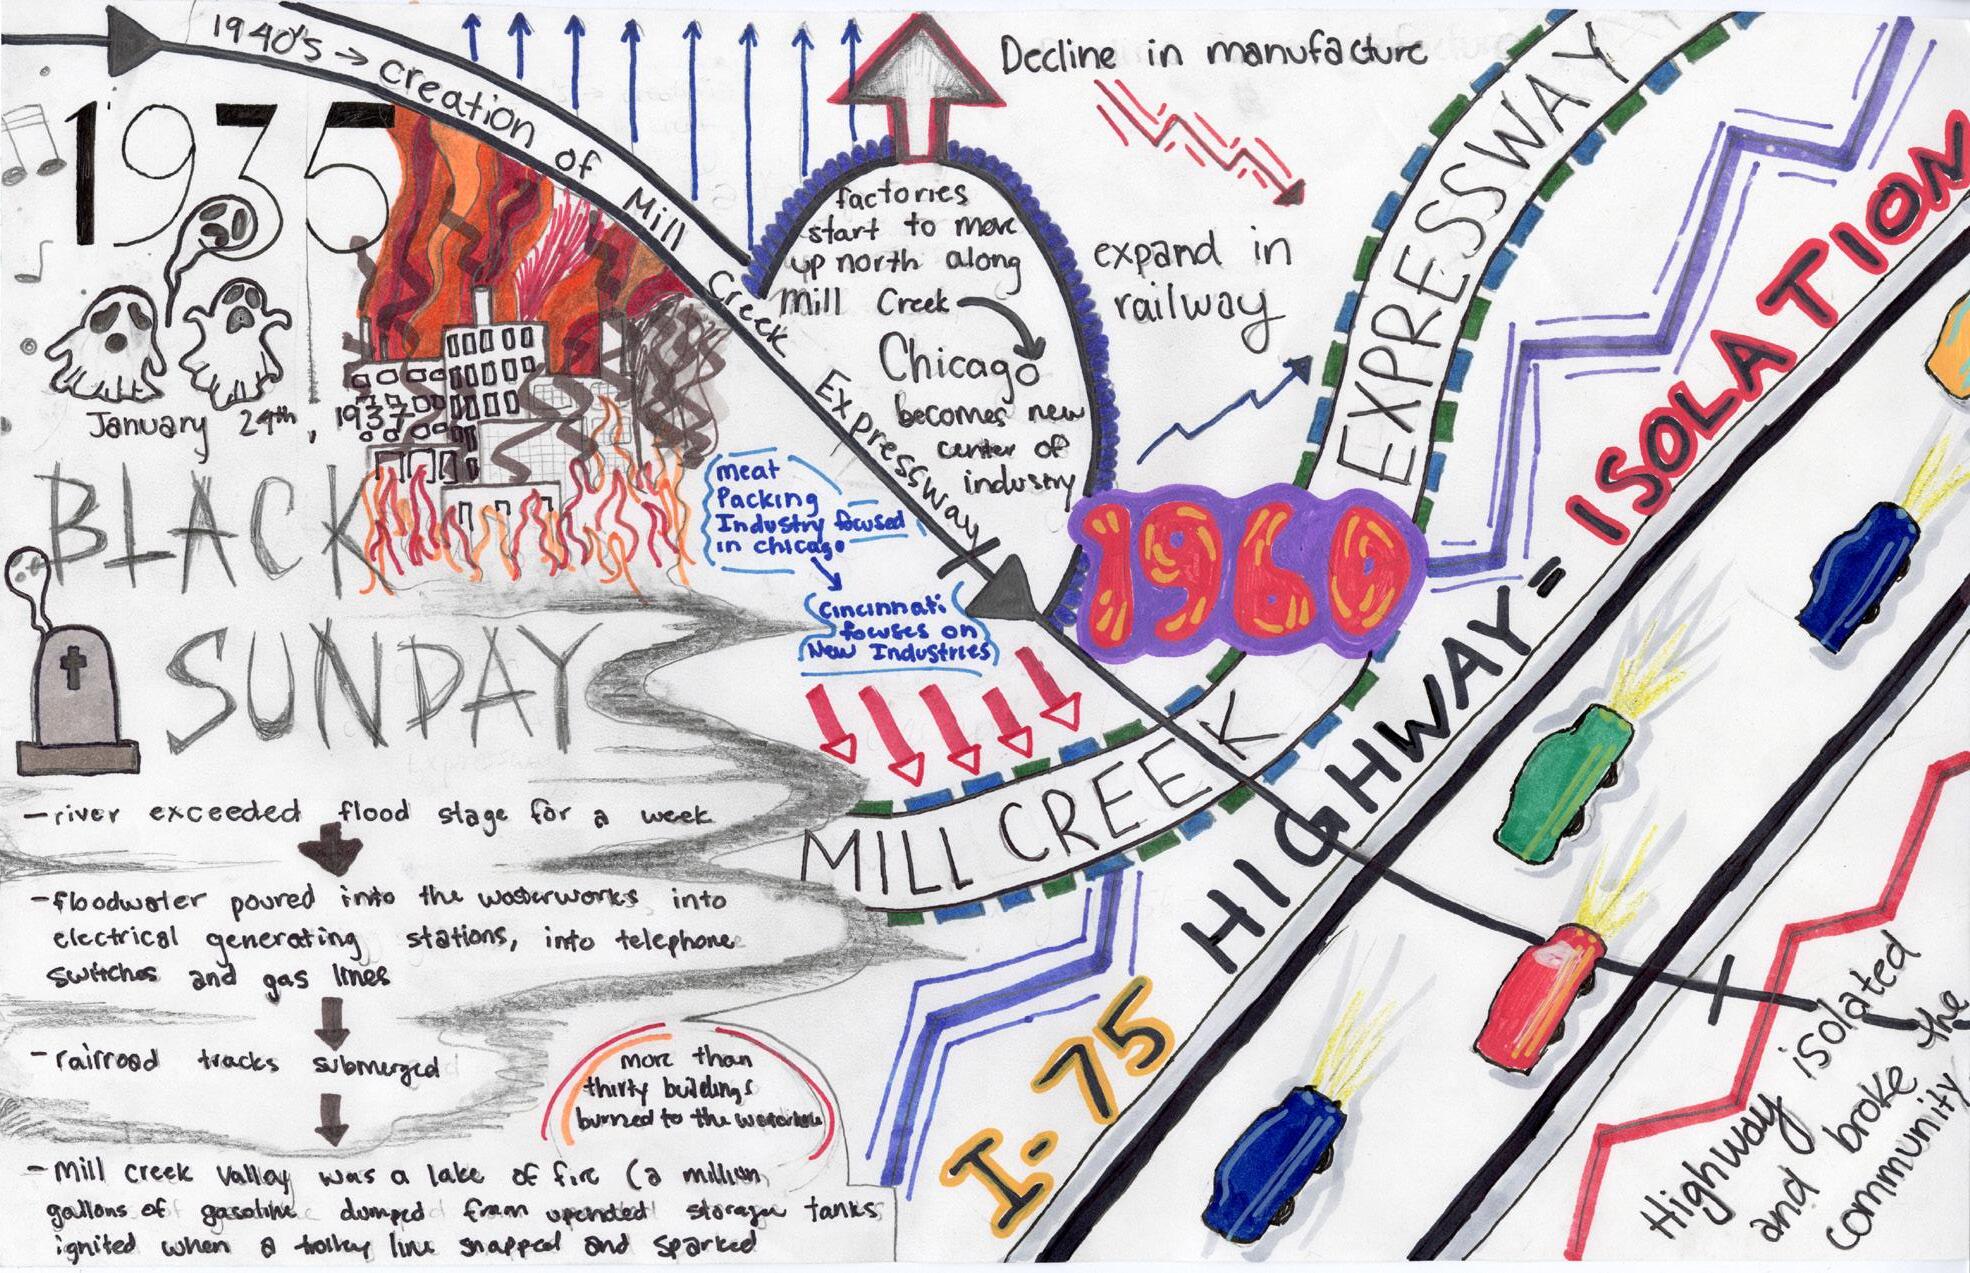 1940's → creation of Mill Creek Expressway
1935
January 24th, 1937
BLACK
SUNDAY
- river exceeded flood stage for a week
- floodwater poured into the waterworks into
electrical generating stations, into telephone
switches and gas lines
- railroad tracks submerged
- Mill creek valley was a lake of fire (a million
gallons of gasoline dumped from upended storage tanks
ignited when a trolley line snapped and sparked
more than
thirty buildings
burned to the waterline
meat
Packing
Industry focused
in chicago
cincinnati
focuses on
New Industries
factories
start to move
up north along
Mill Creek
Chicago
becomes new
center of
industry
Decline in manufacture
expand in
railway
1960
MILL CREEK EXPRESSWAY
I-75
HIGHWAY = ISOLATION
Highway isolated
and broke the
community